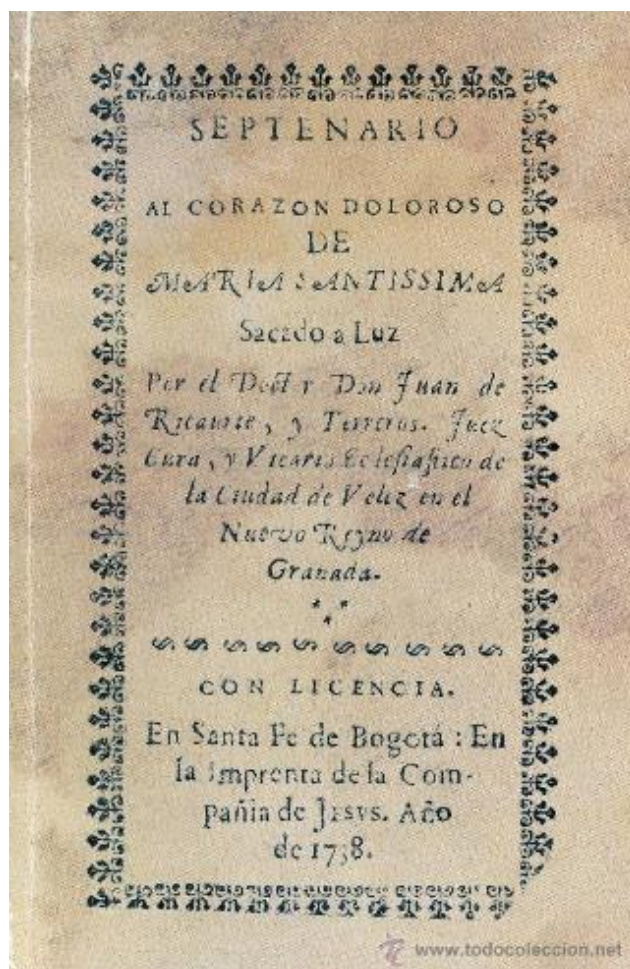 SEPTENARIO
AL CORAZON DOLOROSO
DE
MARIA SANTISSIMA
Sacado a Luz
Por el Doct r Don Juan de
Ricaurte, y Terreros. Juez
Cura, y Vicario Eclesiastico de
la Ciudad de Velez en el
Nuevo Reyno de
Granada.
CON LICENCIA.
En Santa Fe de Bogotá : En
la Imprenta de la Com-
pañia de Jesvs. Año
de 1738.
www.todocoleccion.net